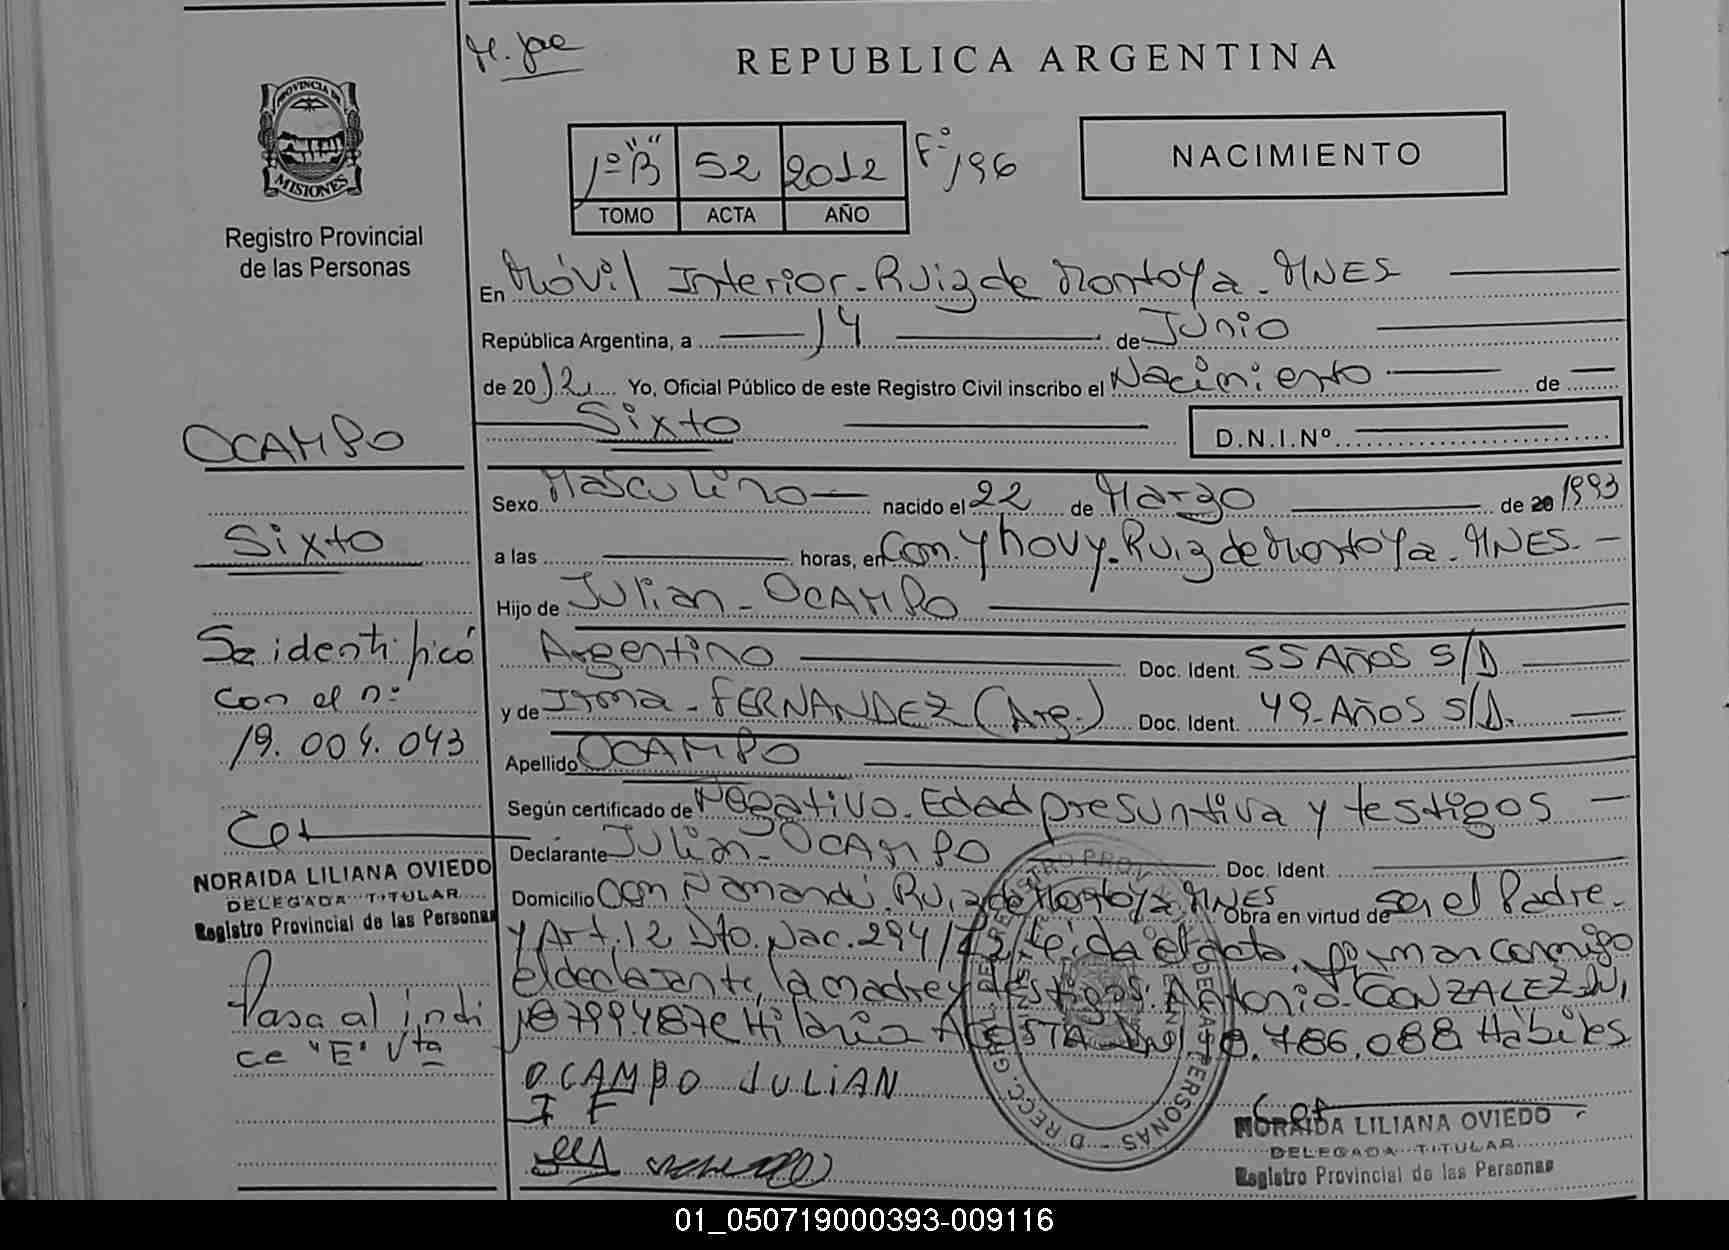 M. Jae
REPUBLICA ARGENTINA
PROVINCIA DE
MISIONES
Registro Provincial
de las Personas
1º "B" 52 2012 Fº 196
TOMO ACTA AÑO
NACIMIENTO
En Móvil Interior - Ruiz de Montoya - MNES
República Argentina, a 14 de Junio
de 2012 Yo, Oficial Público de este Registro Civil inscribo el Nacimiento de
Sixto D.N.I.Nº
Sexo Masculino nacido el 22 de Marzo de 20 1993
a las horas, en Com. Yhovy - Ruiz de Montoya - MNES. -
Hijo de Julian - OCAMPO
Argentino Doc. Ident. 55 Años S/D
y de Irma - FERNANDEZ (Arg.) Doc. Ident. 49 - Años S/D.
Apellido OCAMPO
Según certificado de Negativo. Edad presuntiva y testigos
Declarante Julián - OCAMPO Doc. Ident.
Domicilio Com Ñamandú. Ruiz de Montoya MNES Obra en virtud de ser el Padre -
y Art. 12 Dto. Nac. 294/72 leída el acta, firman conmigo
el declarante, la madre y testigos: Antonio - GONZALEZ
18799487 e Hilario ACOSTA 18.786.088 Hábiles
OCAMPO JULIAN
I F
NORAIDA LILIANA OVIEDO
DELEGADA TITULAR
Registro Provincial de las Personas
OCAMPO
Sixto
Se identificó
con el nº
19.004.043
NORAIDA LILIANA OVIEDO
DELEGADA TITULAR
Registro Provincial de las Personas
Pasa al indi
ce "E" Vta
01_050719000393-009116